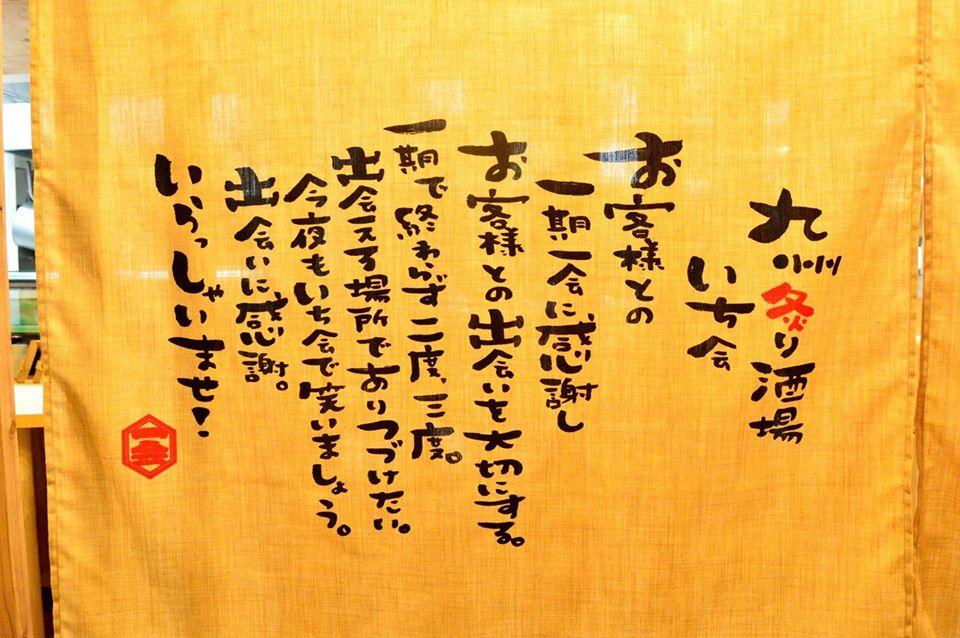 九州炙り酒場
いち会
お客様との
一期一会に、感謝し
お客様との出会いを大切にする。
一期で終わらず二度、三度。
出会える場所でありつづけたい。
今夜もいち会で笑いましょう。
出会いに、感謝。
いらっしゃいませ!
一会